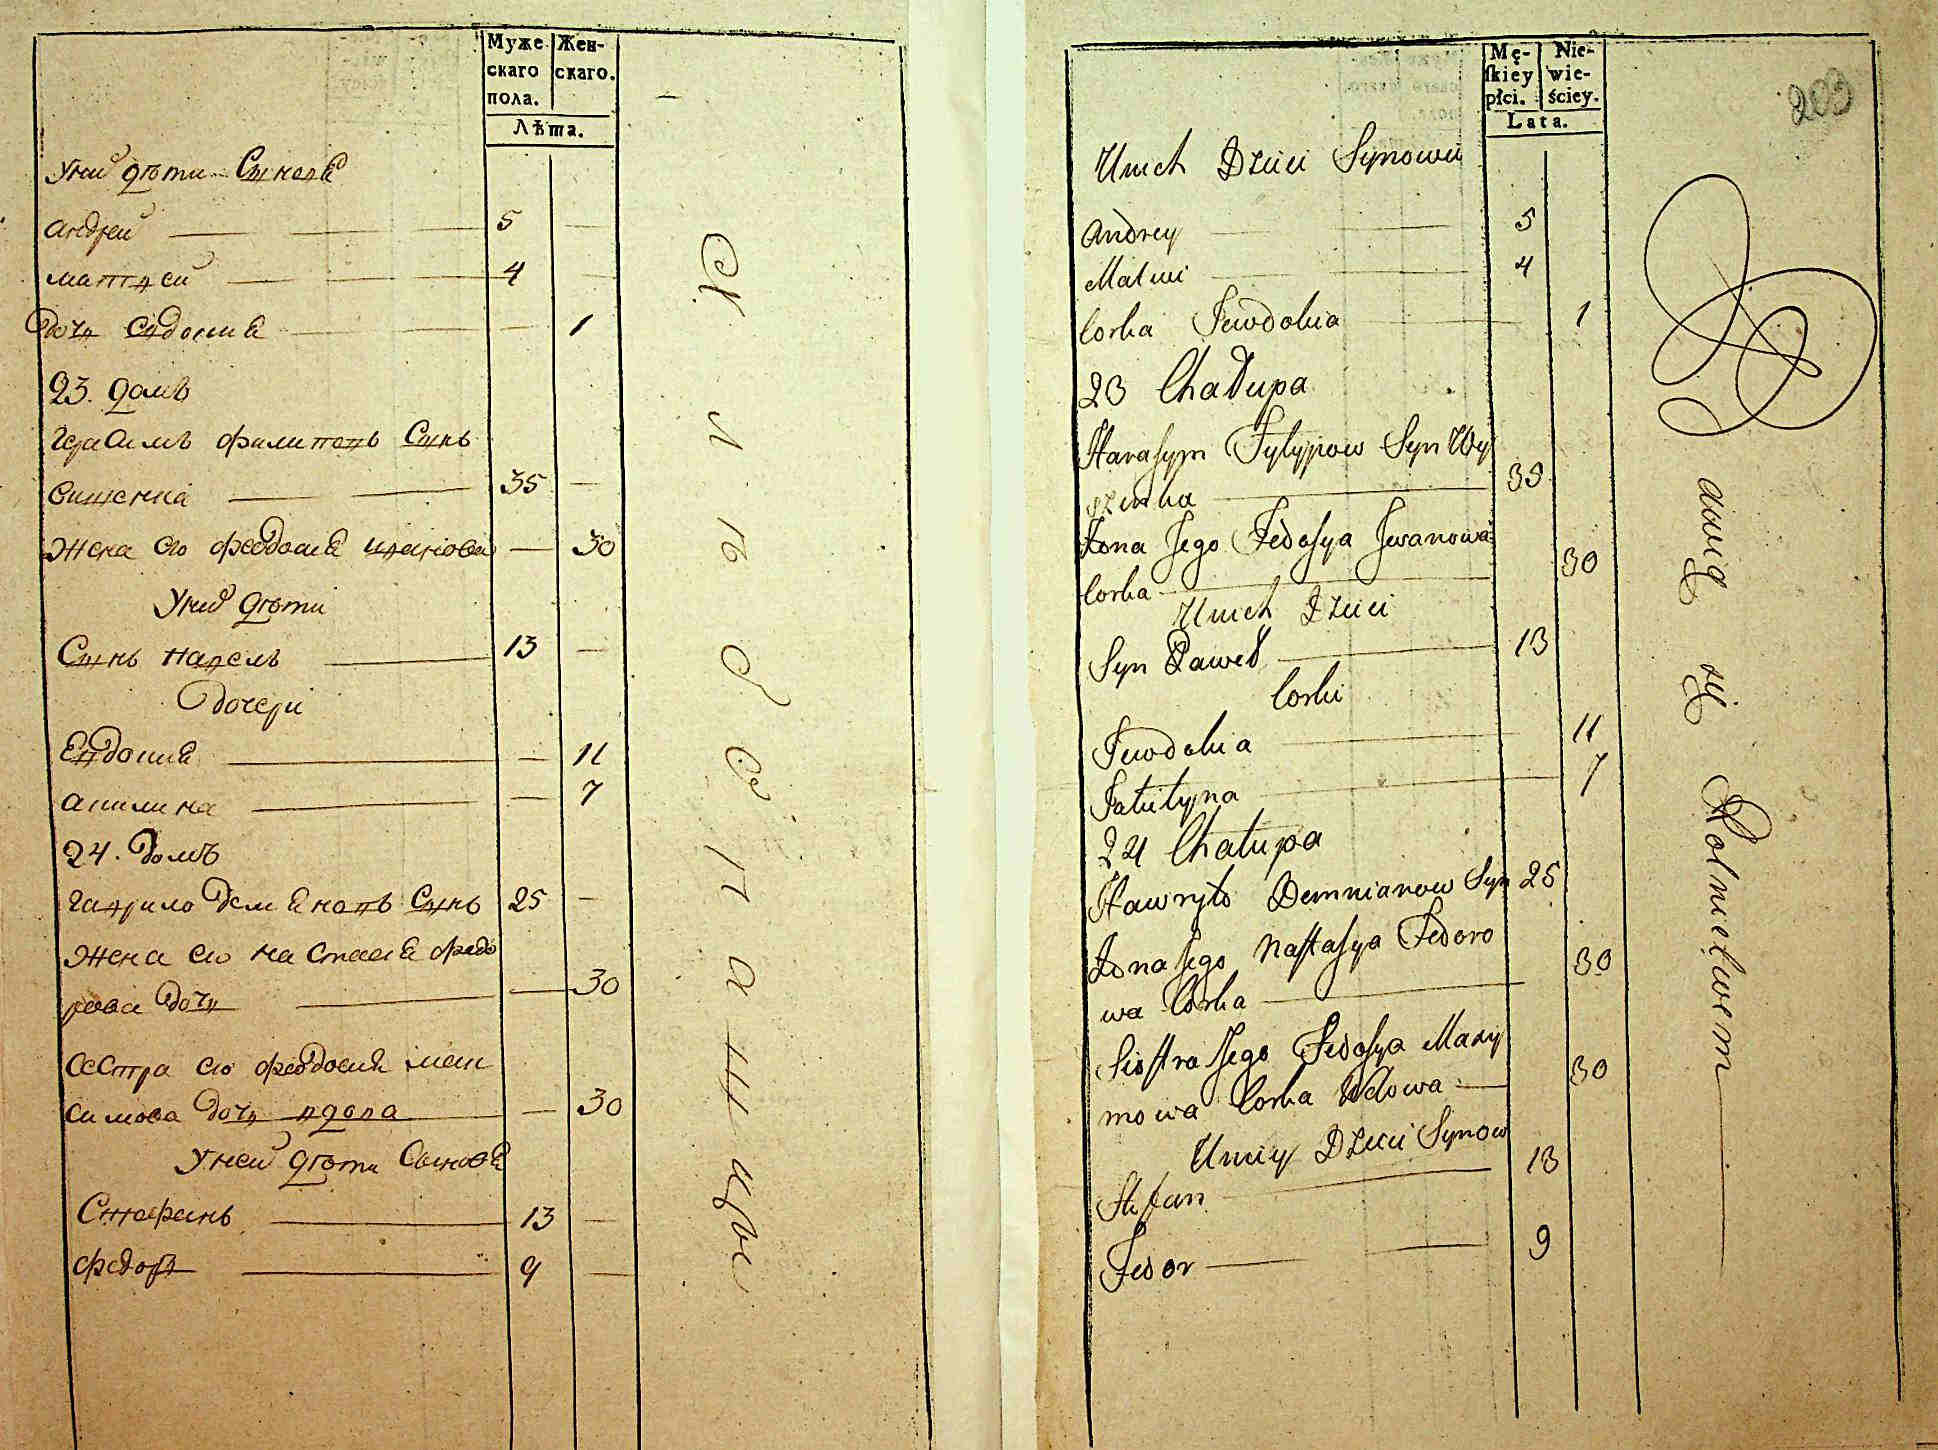 Муже
скаго
пола.
Жен-
скаго.
Лѣта.
Унихъ дѣти Сынове
андрей 5
матвей 4
Дочь Евдокия 1
23. домъ
Герасимъ филиповъ Сынъ
вишенка 35
жена его феодосия иванова 30
Унихъ дѣти
Сынъ павелъ 13
Дочери
Евдокия 11
акилина 7
24. Домъ
гаврило Демяновъ Сынъ 25
жена его настасия федо
рова дочь 30
сестра его феодосия мак
симова дочь вдова 30
Унеи дѣти Сынове
Стефанъ 13
федоръ 9
хлѣбопашцы
Mę-
ſkiey
płci.
Nie-
wie-
ściey.
Lata.
203
Unich Dzieci Synowie
Andrey 5
Matwi 4
Corka Jewdokia 1
23 Chałupa
Harasym Fylypow Syn Wy
szenka 35
Żona Jego Fedosya Jwanowa
Corka 30
Unich Dzieci
Syn Paweł 13
Corki
Jewdokia 11
Jakilyna 7
24 Chałupa
Hawryło Demnianow Syn 25
Żona Jego Nastasya Fedoro
wa Corka 30
Siostra Jego Fedosya Maxy
mowa Corka Wdowa 30
Uniey Dzieci Synow
Stefan 13
Fedor 9
Bawią się Rolnictwem